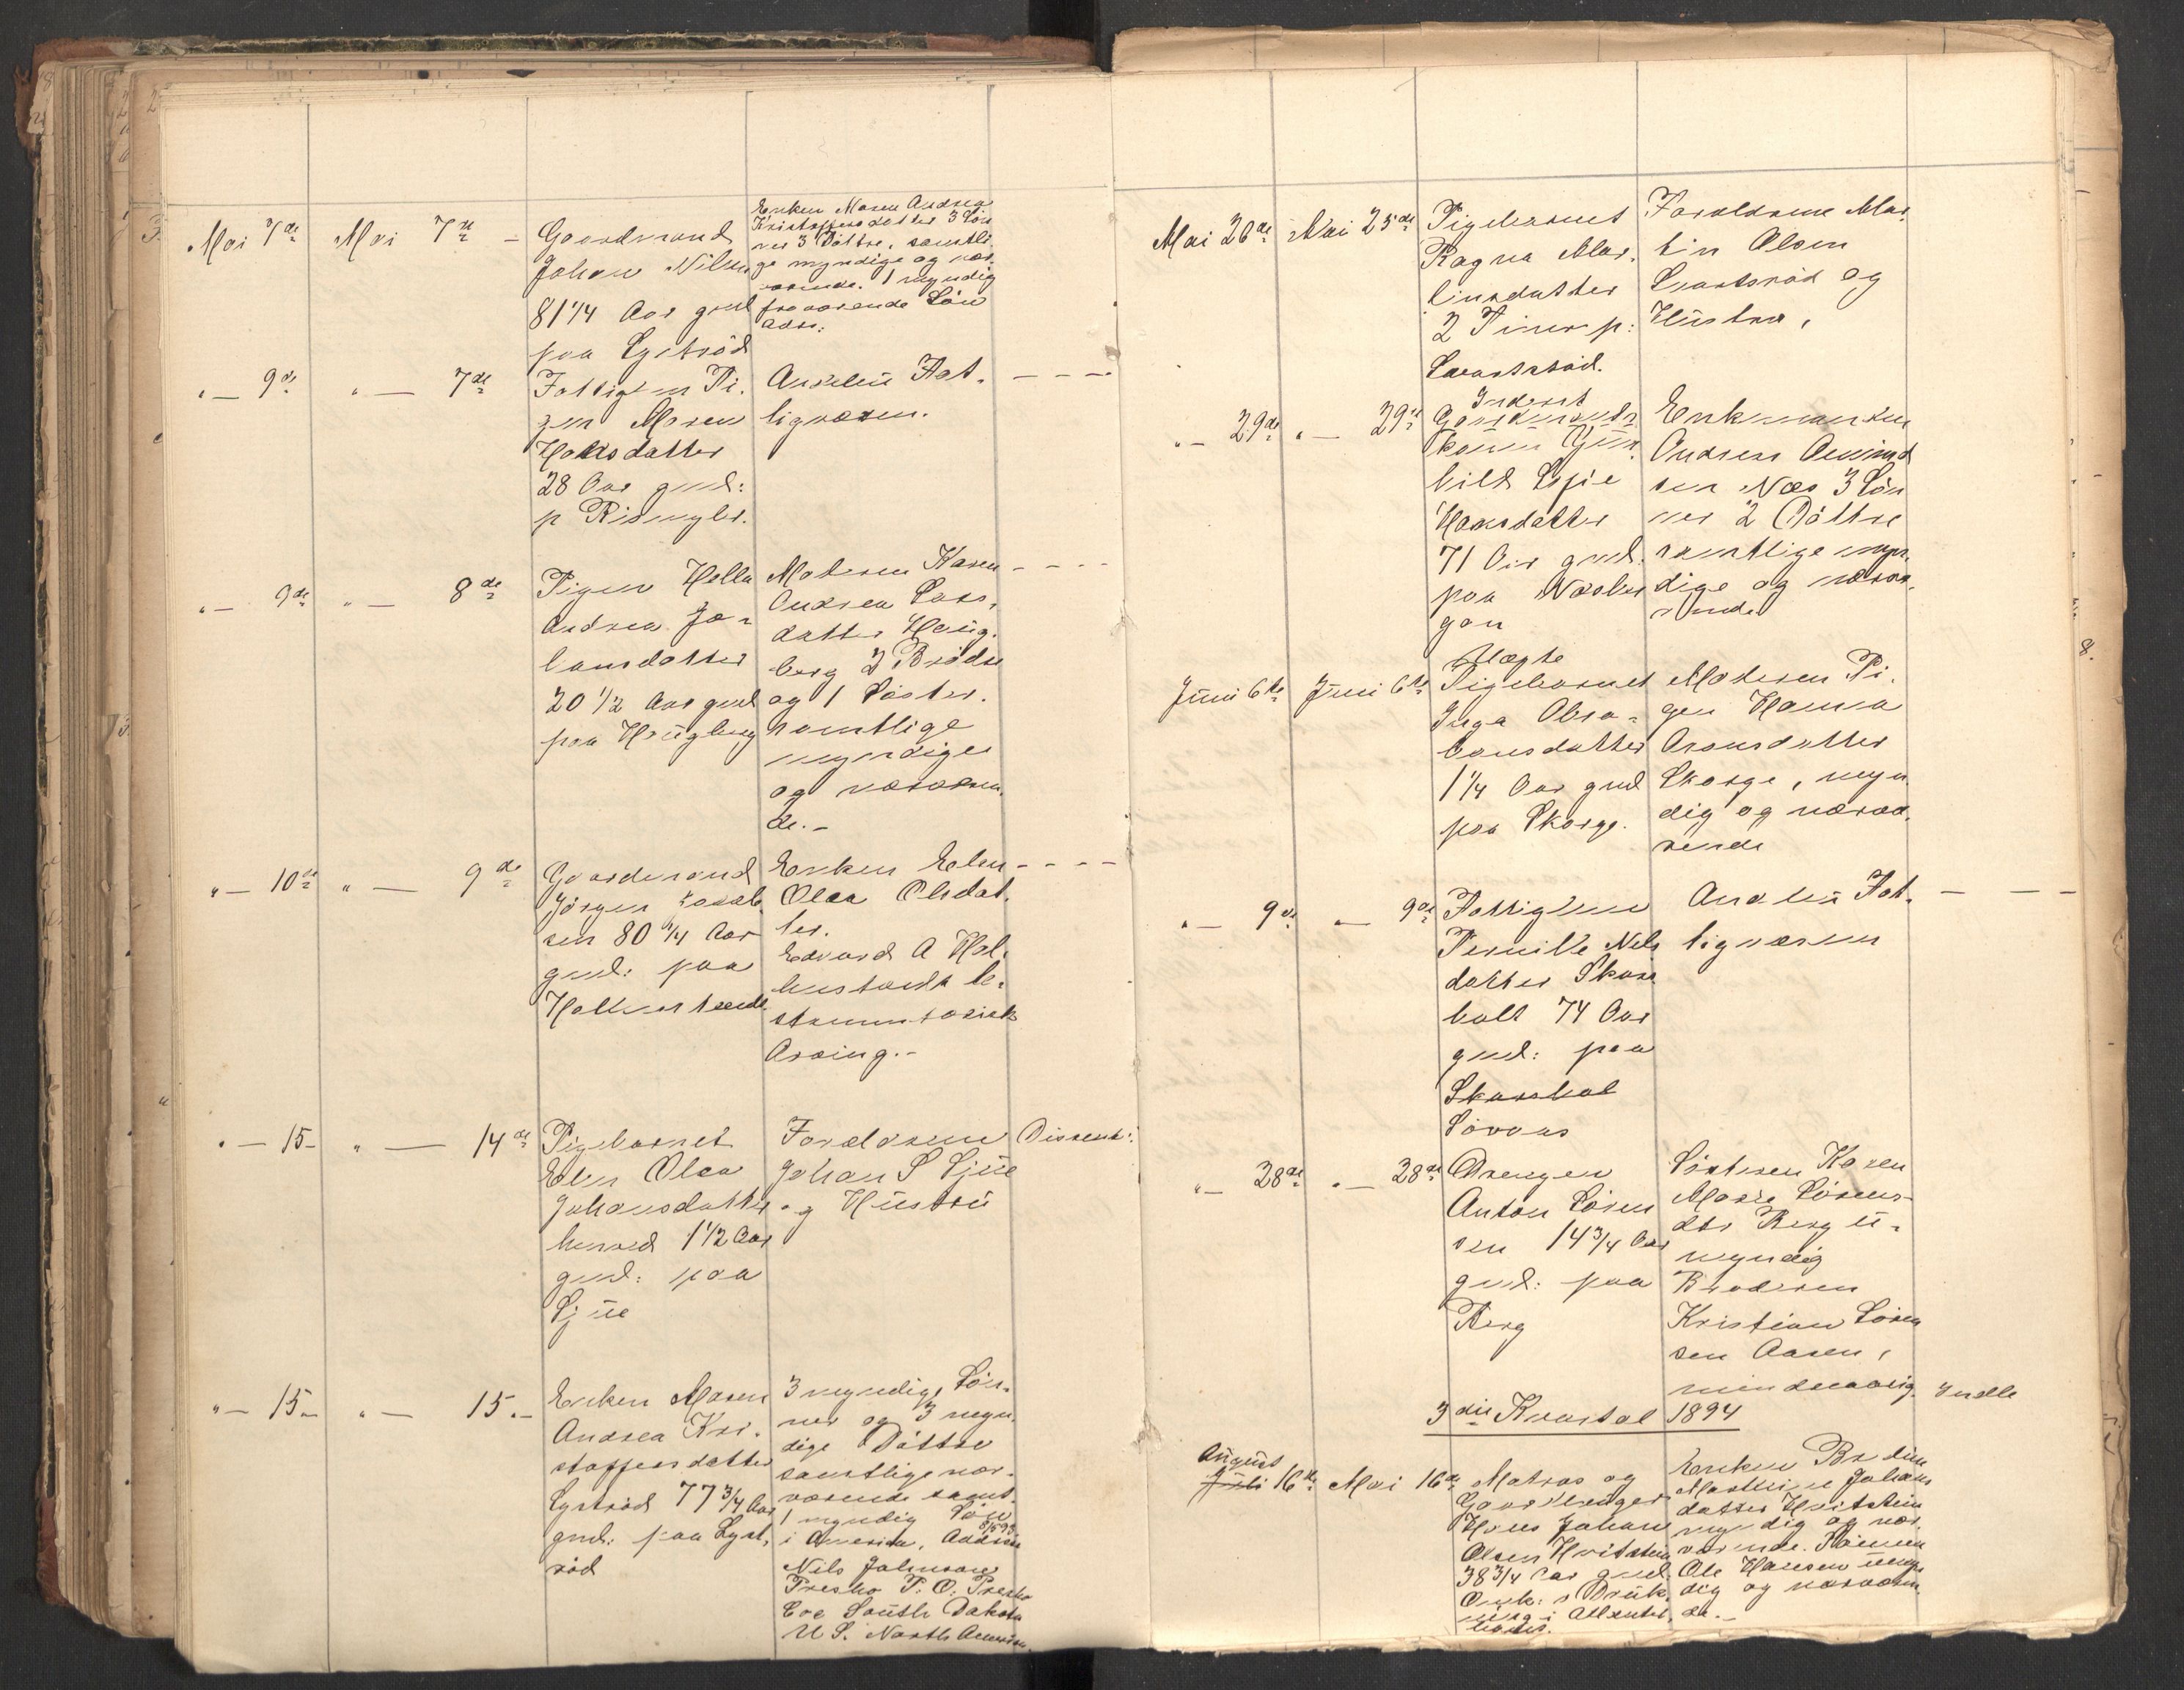 Mai 7de Mai 7de – Gaardmand
Johan Nilsen
81 1/4 Aar gml
paa Lystrød
Enken Maren Andrea
Kristoffersdatter 3 Søn
ner 3 Døttre, samtli
ge myndige og nær
værende. 1 myndig
fraværende Søn
Adrs:
" — 9de " — 7de Fattiglem Pi.
gen Maren
Hansdatter
28 Aar gml:
p
Anselin Fat. – – –
tigvæsen.
" — 9de " — 8de Pigen Hella
Andrea Ja=
datter
20 1/2 Aar gml
paa Haugberg
Moderen Karen – – –
Andrea Lars.
datter Haug.
berg 2 Brødre
og 1 Søster.
samtlige
myndige
og nærværen.
de. –
" — 10de " — 9de Gaardmand
Jørgen Jacob.
sen 80 1/4 Aar
gml: paa
Enken Elen – – – –
Olea Olsdat.
ter.
Edvard A Hol.
Arving. –
" — 15– " — 14de Pigebarnet
Elen Olea
Johansdatter
1 1/2 Aar
gml: paa
Sjue
Forældrene Dissent:
Johan S Sjue
og Hustru
" — 15– " — 15.– Enken Maren
Andrea Kri.
stoffersdatter
Lystrød 77 3/4 Aar
gml: paa Lyst.
rød
3 myndige Søn.
ner og 3 myn.
dige Døttre
samtlige nær.
værende samt.
1 myndig Søn
i Amerika, Address
Nils Johnson
Presho P. O. Presho
Coe South Dakota
U S. North America.
Mai 26de Mai 25de Pigebarnet
Ragna Mar.
tinsdatter
2 Timer p:
Svartsrød.
Forældrene Mar.
tin Olsen
Svartsrød og
Hustru,
" — 29de " — 29de Inderst
Gaardmands
kone Gun.
hild Sofie
Hansdatter
71 Aar gml.
paa
gen
Enkemanden
Andreas Amund
sen Næs 3 Søn
ner 2 Døttre
samtlige myn.
dige og nærvæ.
rende
Juni 6te Juni 6te Uægte
Pigebarnet
Inga Abra=
hamsdatter
1 1/4 Aar gml
paa Skorge.
Moderen Pi.
gen Hanna
Aronsdatter
Skorge, myn
dig og nærvæ.
rende
" — 9de " — 9de Fattiglem
Pernille Nils
datter Skars
holt 74 Aar
gml: paa
Skarshol
Søraas
Anselin Fat. – – –
tigvæsen
" — 28de " — 28de Drengen
Anton Søren
sen 14 3/4 Aar
gml: paa
Berg
Søsteren Karen
Marie Sørens-
dtr Berg u=
myndig
Broderen
Kristian Søren
sen Aasen,
mindreaarig. Indlb
3die Kvartal 1894
August
Juli 16de Mai 16de Matros og
Gaardbruger
Hans Johan
Olsen Hvitstein
38 3/4 Aar gml.
Omk: v Druk.
ning i Atlanter.
havet.
Enken
Mathilde Johans
datter Hvitstein
myndig og nær.
værende. Sønnen
Ole Hansen umyn
dig og nærværen
de. –